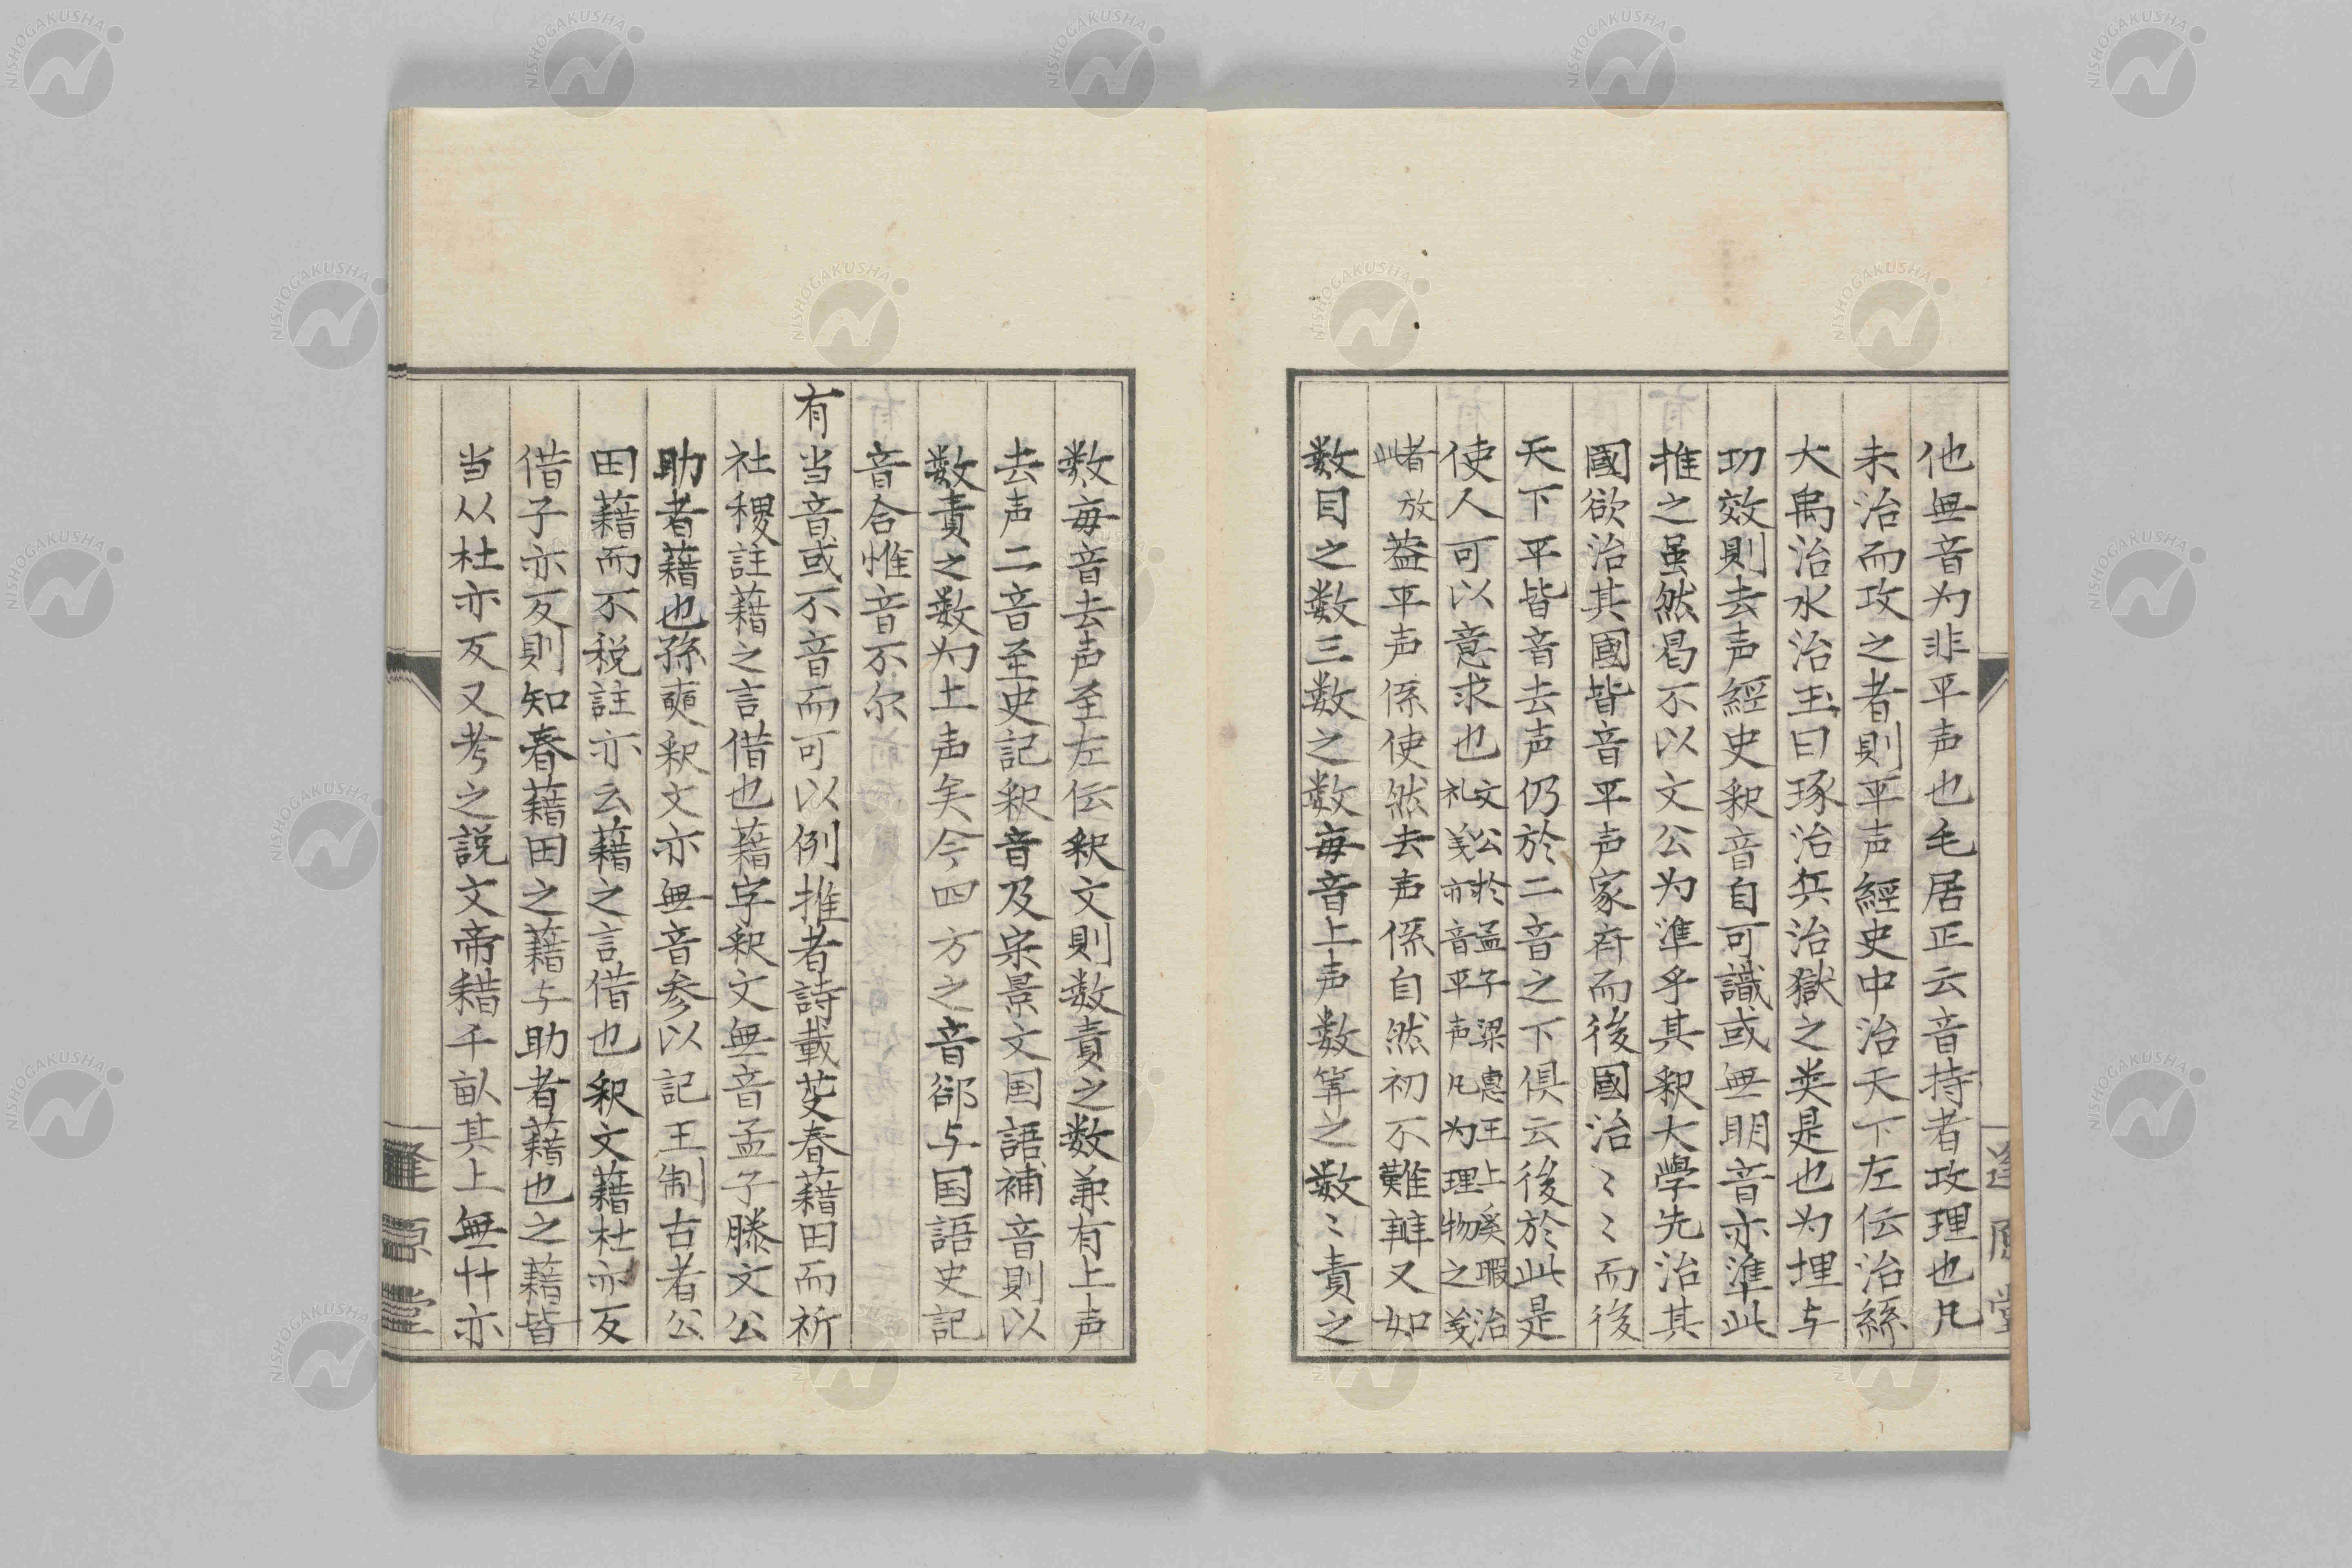 他無音为非平声也毛居正云音持者攻理也凡
未治而攻之者則平声經史中治天下左伝治絲
大禹治水治玉曰琢治兵治獄之类是也为理与
功效則去声經史釈音自可識或無明音亦準此
推之虽然曷不以文公为準乎其釈大學先治其
國欲治其國國皆音平声家斉而後國治〻〻而後
天下平皆音去声仍於二音之下俱云後於此是
使人可以意求也文公於孟子梁惠王上奚暇治礼义亦音平声凡为理物之义
者放此蓋平声係使然去声係自然初不難辯又如
数目之数三数之数毎音上声数筭之数〻責之
数毎音去声至左伝釈文則数責之数兼有上声
去声二音至史記釈音及宋景文国語補音則以
数責之数为上声矣今四方之音郤与国語史記
音合惟音不尔
有当音或不音而可以例推者詩載芟春藉田而祈
社稷註藉之言借也藉字釈文無音孟子滕文公
助者藉也孫奭釈文亦無音参以記王制古者公
田藉而不税註亦云藉之言借也釈文藉杜亦反
借子亦反則知春藉田之藉与助者藉也之藉皆
当从杜亦反又考之説文帝耤千畝其上無艹亦
逢原堂
NISHOGAKUSHA